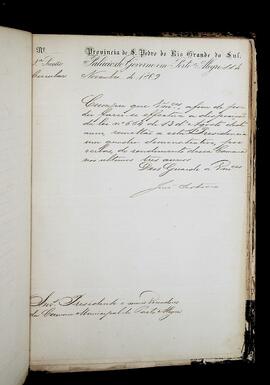 Nº
Provincia de S. Pedro do Rio Grande do Sul.
1ª Secção Palacio do Governo em Porto Alegre 11 de
Circular Novembro de 1889
Cumpre que Vmces a fim de po-
der fazer-se effectiva a disposição
da lei nº de 13 de Agosto deste
anno remettão a esta Presidencia
um quadro demonstrativo, por
verbas, do rendimento dessa Camara
nos ultimos tres annos
Deos Guarde a Vmces
Snrs. Presidente e mais Vereadores
da Camara Municipal de Porto Alegre